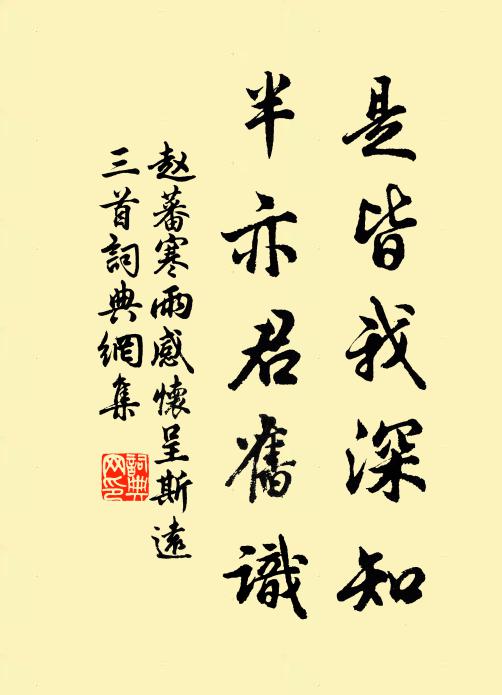 是皆我深知
半亦君舊識
赵蕃寒雨感懷呈斯遠
三首詞典網集
詞典
网印